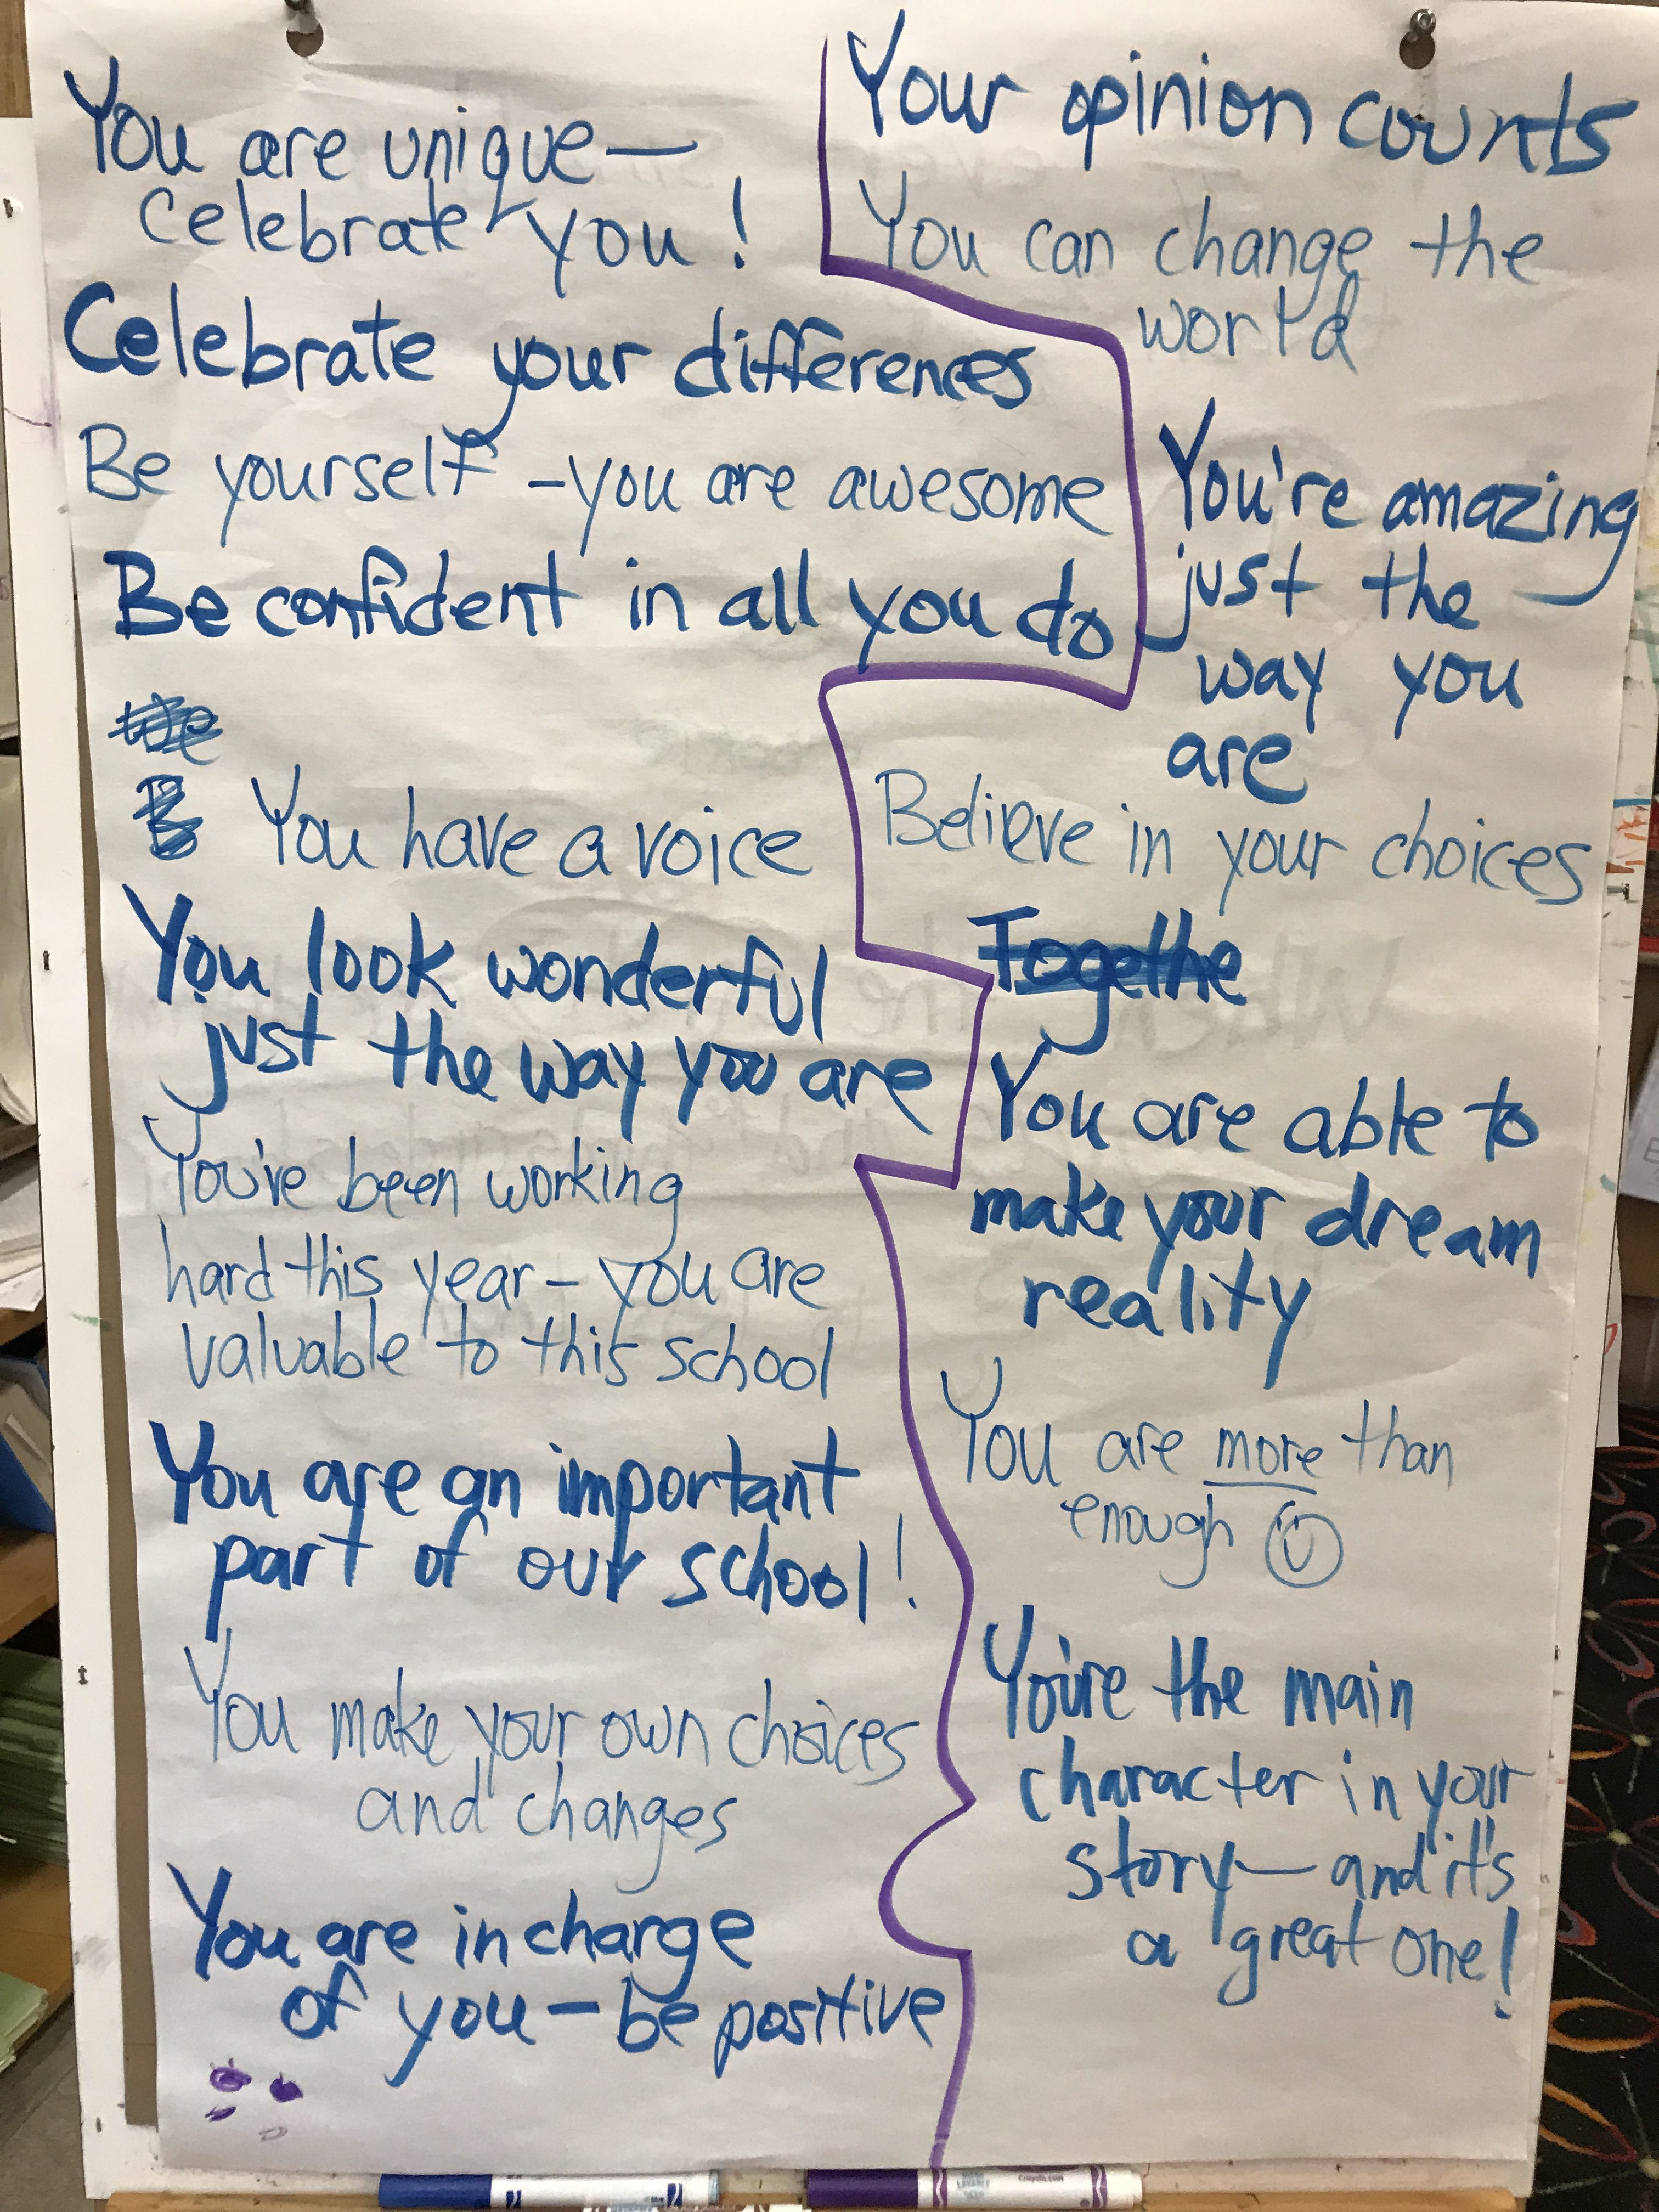 You are unique—
celebrate you!
Celebrate your differences
Be yourself - you are awesome
Be confident in all you do
You have a voice
You look wonderful
just the way you are
You've been working
hard this year - you are
valuable to this school
You are an important
part of our school!
You make your own choices
and changes
You are in charge
of you - be positive
Your opinion counts
You can change the
world
You're amazing
just the
way you
are
Believe in your choices
Togethe
You are able to
make your dream
reality
You are more than
enough
You're the main
character in your
story— and it's
a great one!
Crayola.com